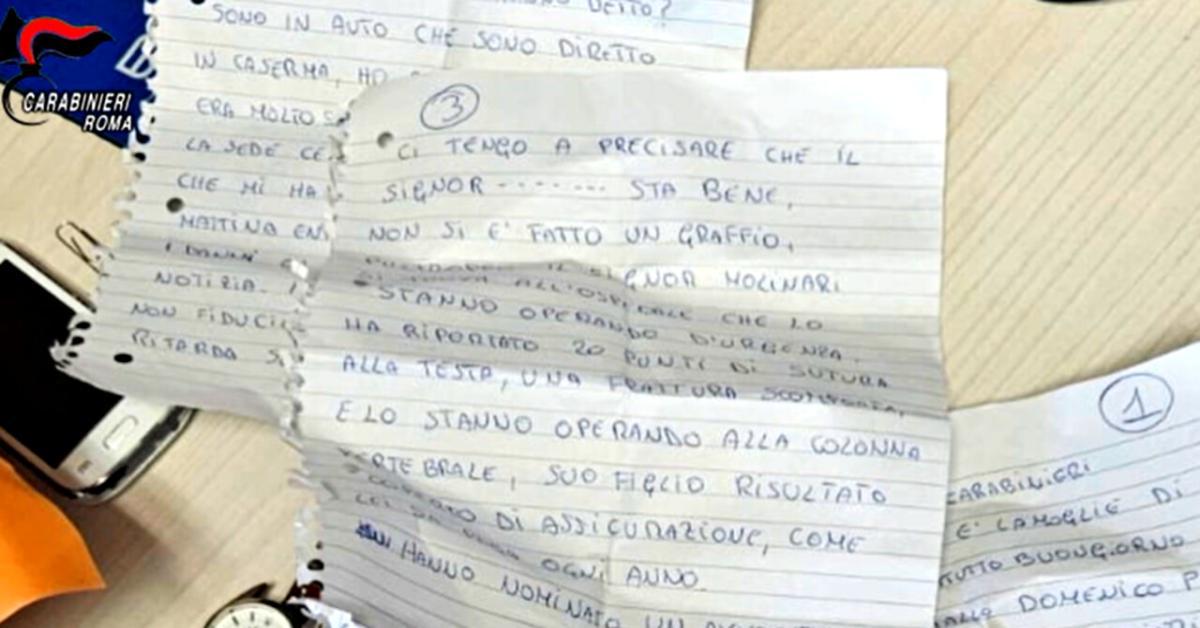 CARABINIERI
ROMA
DETTO?
SONO IN AUTO CHE SONO DIRETTO
IN CASERMA, HO
ERA MOLTO
LA SEDE
CHE MI HA
MATTINA
NOTIZIA.
NON
RITARDA
3
CI TENGO A PRECISARE CHE IL
SIGNOR -------- STA BENE,
NON SI E' FATTO UN GRAFFIO,
MOLINARI
ALL'OSPEDALE CHE LO
STANNO OPERANDO D'URGENZA.
HA RIPORTATO 20 PUNTI DI SUTURA
ALLA TESTA, UNA FRATTURA SCOMPOSTA,
E LO STANNO OPERANDO ALLA COLONNA
VERTEBRALE, SUO FIGLIO RISULTATO
DI ASSICURAZIONE, COME
OGNI ANNO.
HANNO NOMINATO UN
1
CARABINIERI
E' LA MOGLIE DI
TUTTO BUONGIORNO
DOMENICO